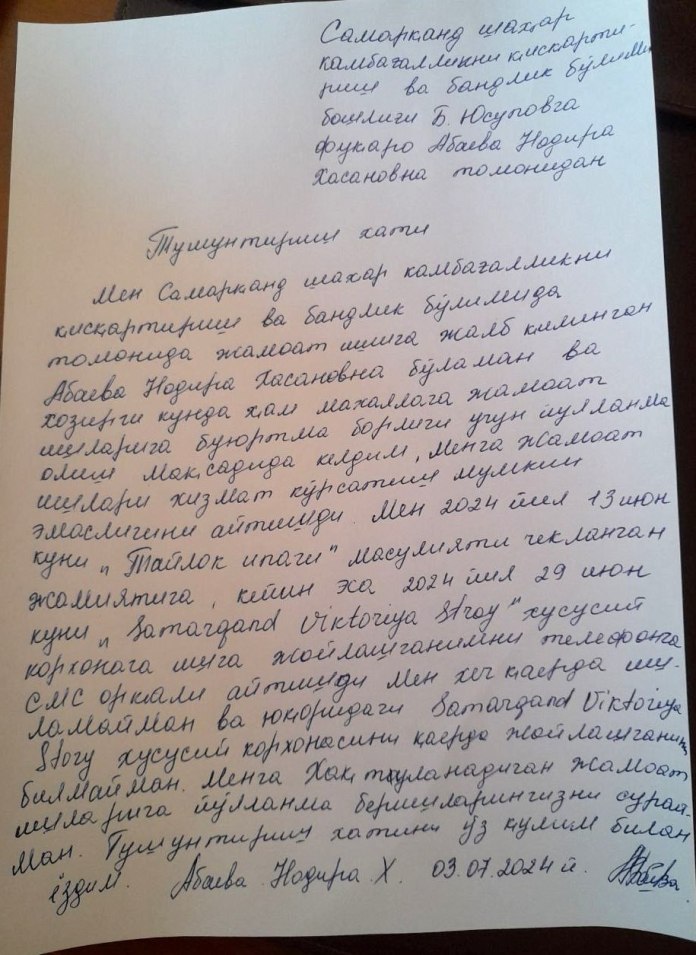 Самарканд шахар
камбағалликни қискарти-
риш ва бандлик бўлими
бошлиғи Б. Юсуповга
фукаро Абаева Нодира
Хасановна томонидан
Тушунтириш хати
Мен Самарқанд шахар камбағалликни
қисқартириш ва бандлик бўлимида
томонида жамоат ишига жалб килинган
Абаева Нодира Хасановна бўламан ва
хозирги кунда ҳам махаллага жамоат
ишларига буюртма борлиги учун йўлланма
олиш мақсадида келдим, Менга жамоат
ишлари хизмат кўрсатиш мумкин
эмаслигини айтишди. Мен 2024 йил 13 июн
куни „Тайлок ипаги" масулияти чекланган
жамиятига, кейин эса 2024 йил 29 июн
куни „Samarqand Viktoriya Stroy" хусусий
корхонага ишга жойлашганимни телефонга
СМС орқали айтишди Мен хеч қаерда иш-
ламайман ва юқоридаги Samarqand Viktoriya
Story хусусий корхонасини қаерда жойлашганини
билмайман. Менга Хак тўланадиган жамоат
ишларига йўлланма беришларингизни сурай-
ман. Тушунтириш хатини ўз қулим билан
ёздим. Абаева Нодира Х. 03.07.2024 й.